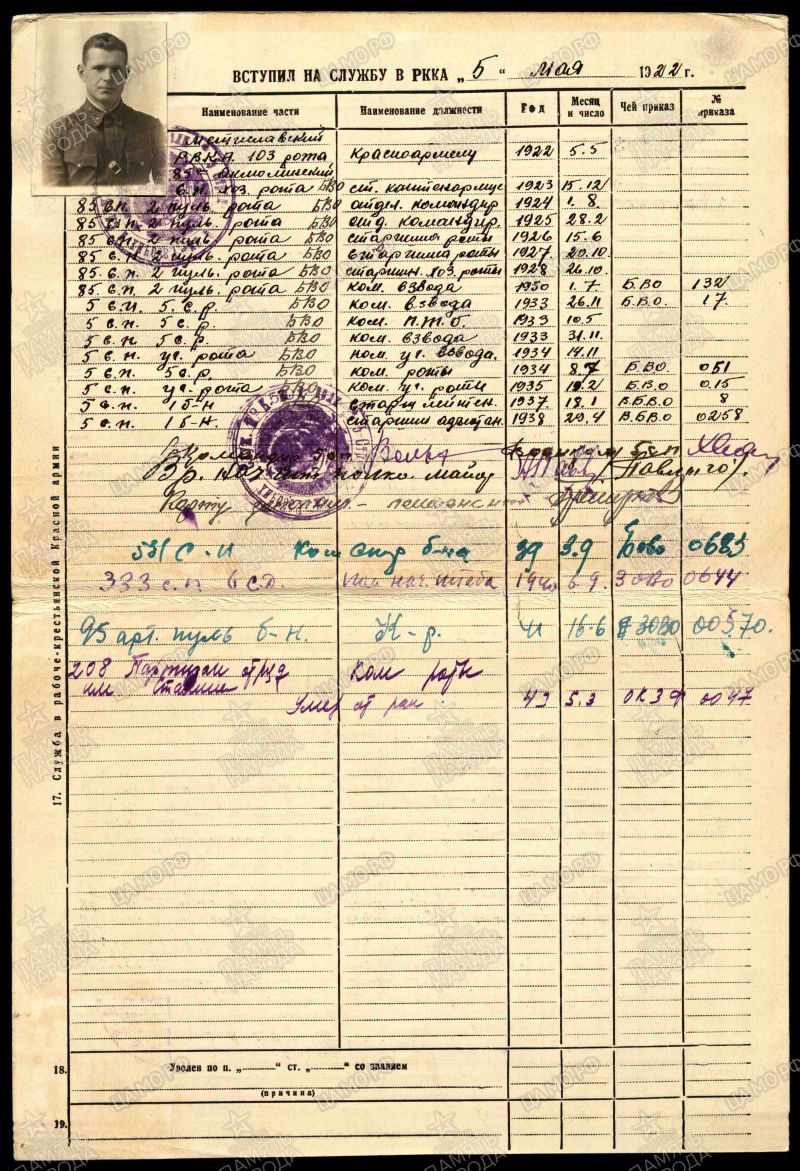 ВСТУПИЛ НА СЛУЖБУ В РККА „5“ мая 1922 г.
Наименование части Наименование должности Год Месяц и число Чей приказ № приказа
Мстиславский
103 рота красноармеец 1922 5.5
85 акмолинский
с.п. 103 рота БВО ст. каптенармус 1923 15.12
85 с.п. 2 пуль. рота БВО отдел. командир 1924 1.8.
85 с.п. 2 пуль. рота БВО отд. командир. 1925 28.2
85 с.п. 2 пуль. рота БВО старшина роты 1926 15.6
85 с.п. 2 пуль. рота БВО старшина роты 1927 20.10
85 с.п. 2 пуль. рота БВО старшин. роты 1928 26.10.
85 с.п. 2 пуль. рота БВО ком. взвода 1.7 БВО 132
5 с.п. 5 с.р. БВО ком. взвода 1933 26.11 Б.В.О 17
5 с.п. 5 с.р. БВО ком. 1933 10.5
5 с.п. 5 с.р. БВО ком. взвода 1933 31.11
5 с.п. уч. рота БВО ком. уч. взвода. 1934 14.11
5 с.п. 5 с.р БВО ком. роты 1934 8.7 Б.В.О 051
5 с.п. уч. рота БВО ком. уч. роты 1935 Б.В.О 015
5 с.п. 1 б-н 1937 18.1 Б.В.О 8
5 с.п. 1 б-н старший адъютан. 1938 20.4 Б.ВО 0258
Командир
майор
Карту
531 с.п Командир б-на 39 3.9 Бово 0683
333 с.п. 6 сд. пом нач. штаба 1940 6.9. Зово 0644
95 арт. пуль б-н. К-р. 41 16.6 ЗОВО 00570.
208 Партизан отряд ком роты
им Сталина
Умер от ран 43 5.3 ОКЗФ 0047
17. Служба в рабоче-крестьянской Красной армии
18. Уволен по п. „ “ ст. „ “ со званием
(причина)
19.
ПАМЯТЬ НАРОДА
ЦАМО.РФ